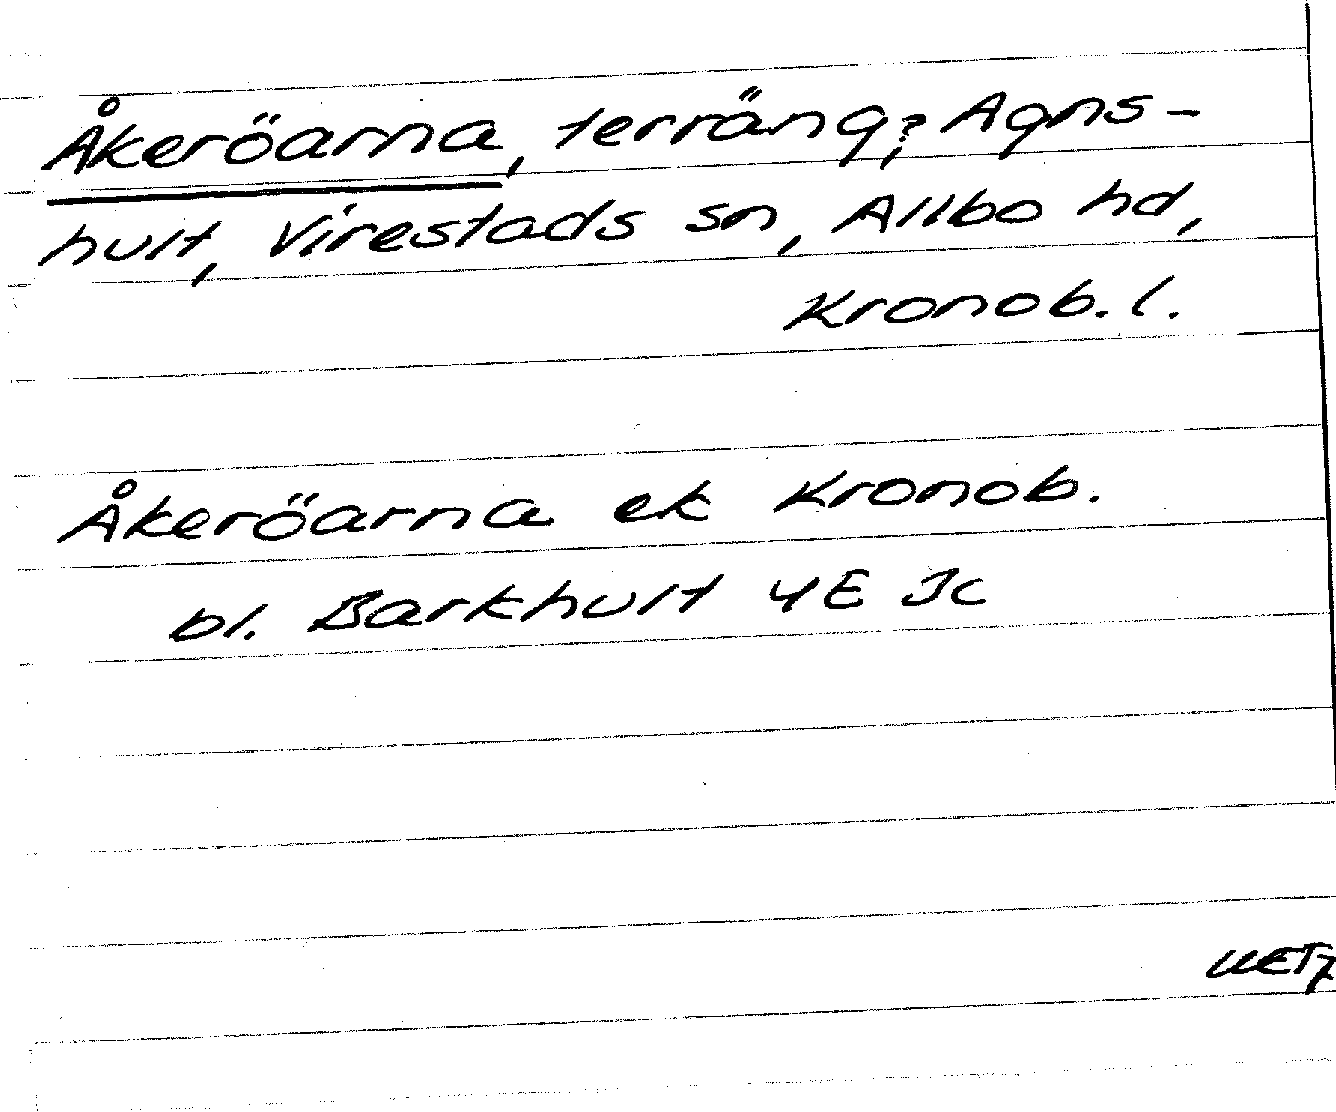 Åkeröarna, terräng?, Agns-
hult, Virestads sn, Allbo hd,
Kronob. l.
Åkeröarna ek Kronob.
bl. Barkhult 4E Jc